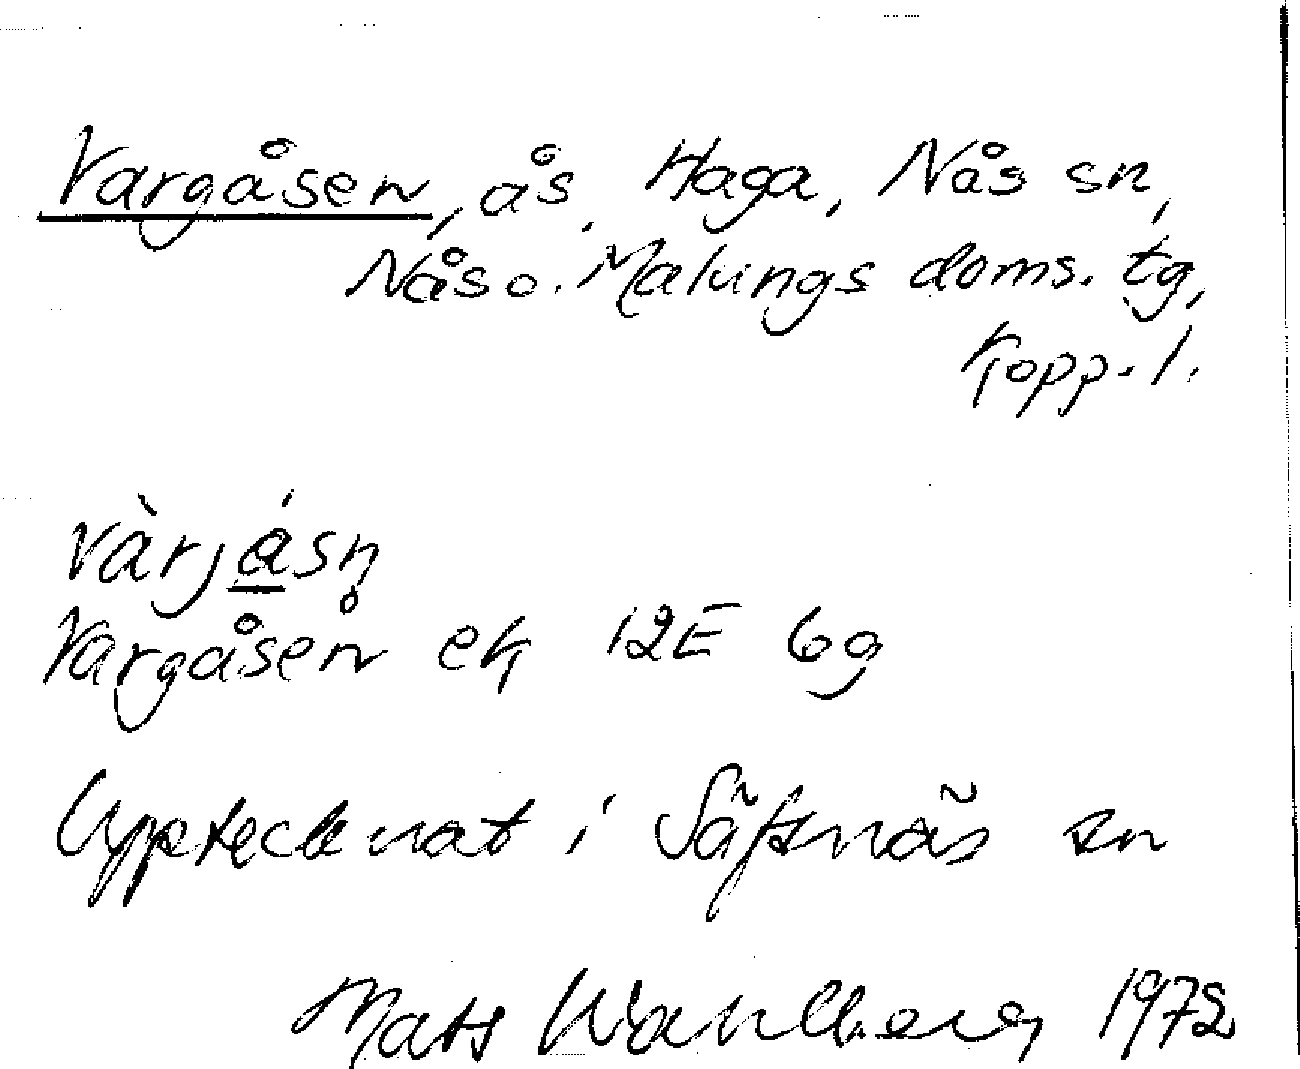 Vargåsen, ås, Haga, Nås sn,
Nås o. Malungs doms. tg,
Kopp. l.
vàrjásn̥
Vargåsen ek 12E 6g
Upptecknat i Säfsnäs sn
Mats Wahlberg 1972